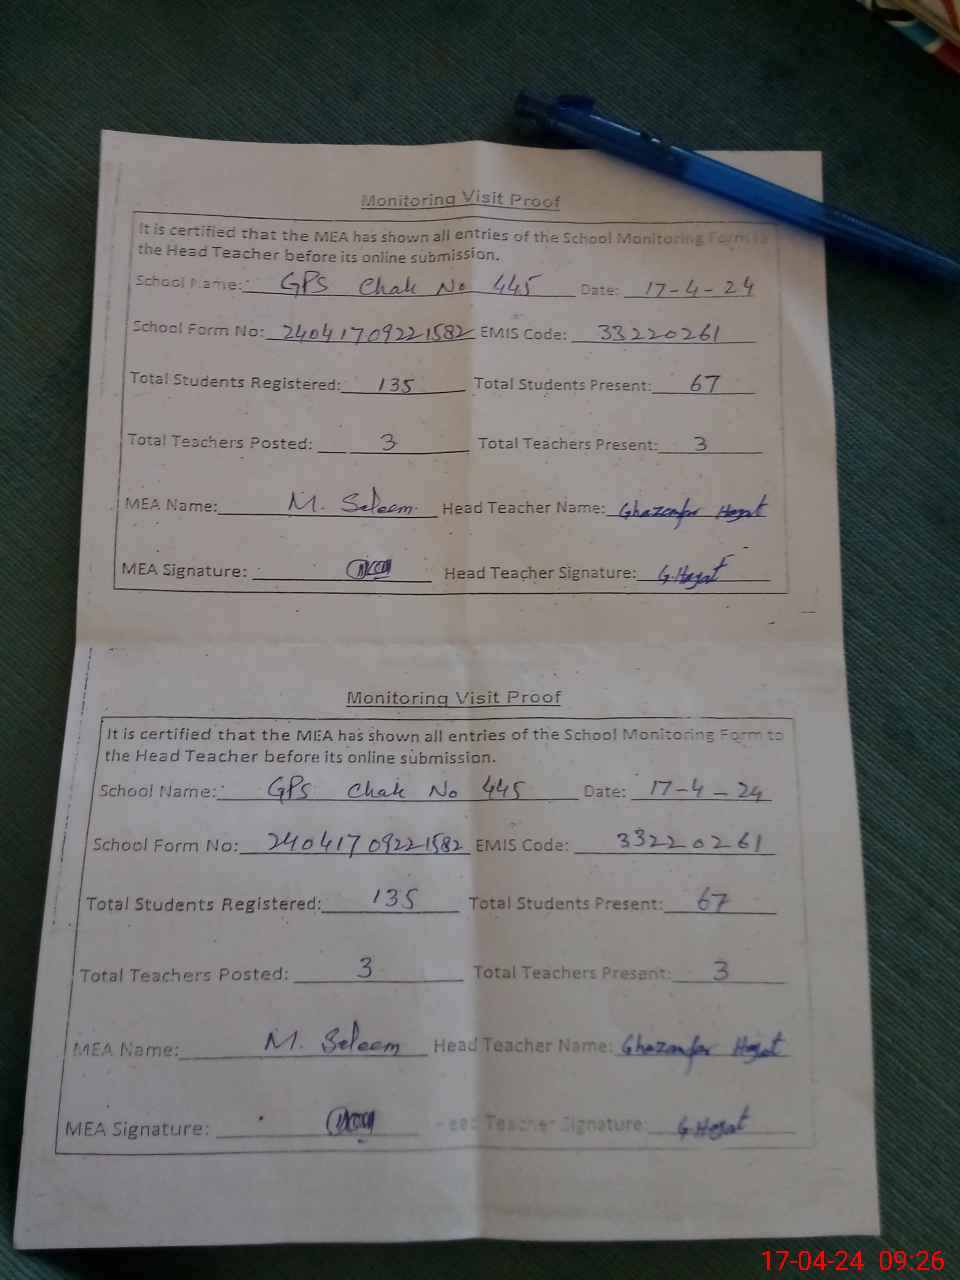 Monitoring Visit Proof
It is certified that the MEA has shown all entries of the School Monitoring Form to
the Head Teacher before its online submission.
School Name: GPS Chak No 445 Date: 17-4-24
School Form No: 24041709221582 EMIS Code: 33220261
Total Students Registered: 135 Total Students Present: 67
Total Teachers Posted: 3 Total Teachers Present: 3
MEA Name: M. Saleem Head Teacher Name: Ghazanfar Hayat
MEA Signature: Head Teacher Signature: G.Hayat
Monitoring Visit Proof
It is certified that the MEA has shown all entries of the School Monitoring Form to
the Head Teacher before its online submission.
School Name: GPS Chak No 445 Date: 17-4-24
School Form No: 24041709221582 EMIS Code: 33220261
Total Students Registered: 135 Total Students Present: 67
Total Teachers Posted: 3 Total Teachers Present: 3
MEA Name: M. Saleem Head Teacher Name: Ghazanfar Hayat
MEA Signature: Head Teacher Signature: G.Hayat
17-04-24 09:26